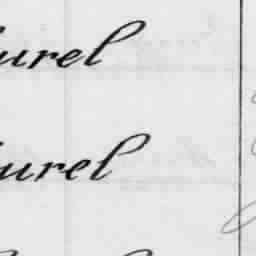 urel
urel